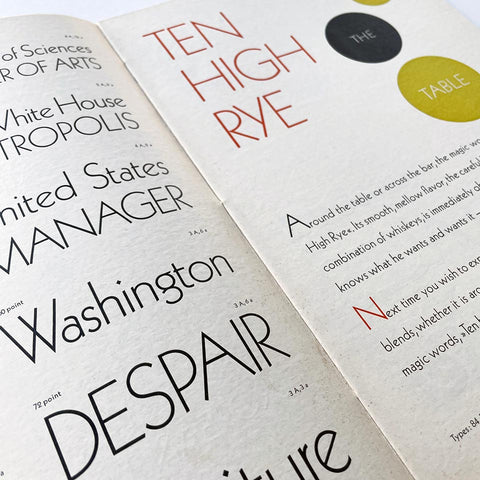 of Sciences
R OF ARTS
White House
TROPOLIS
United States
MANAGER
3 A, 6 a
point
Washington
3 A, 6 a
72 point
DESPAIR
3 A, 3 a
iture
TEN
HIGH
RYE
THE
TABLE
Around the table or across the bar, the magic wo
High Rye«. Its smooth, mellow flavor, the careful
combination of whiskeys, is immediately ob
knows what he wants and wants it —
Next time you wish to exp
blends, whether it is aro
magic words, »Ten h
Types: 84,